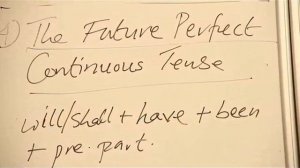 4) The Future Perfect
Continuous Tense
will/shall + have + been
+ pre. part.